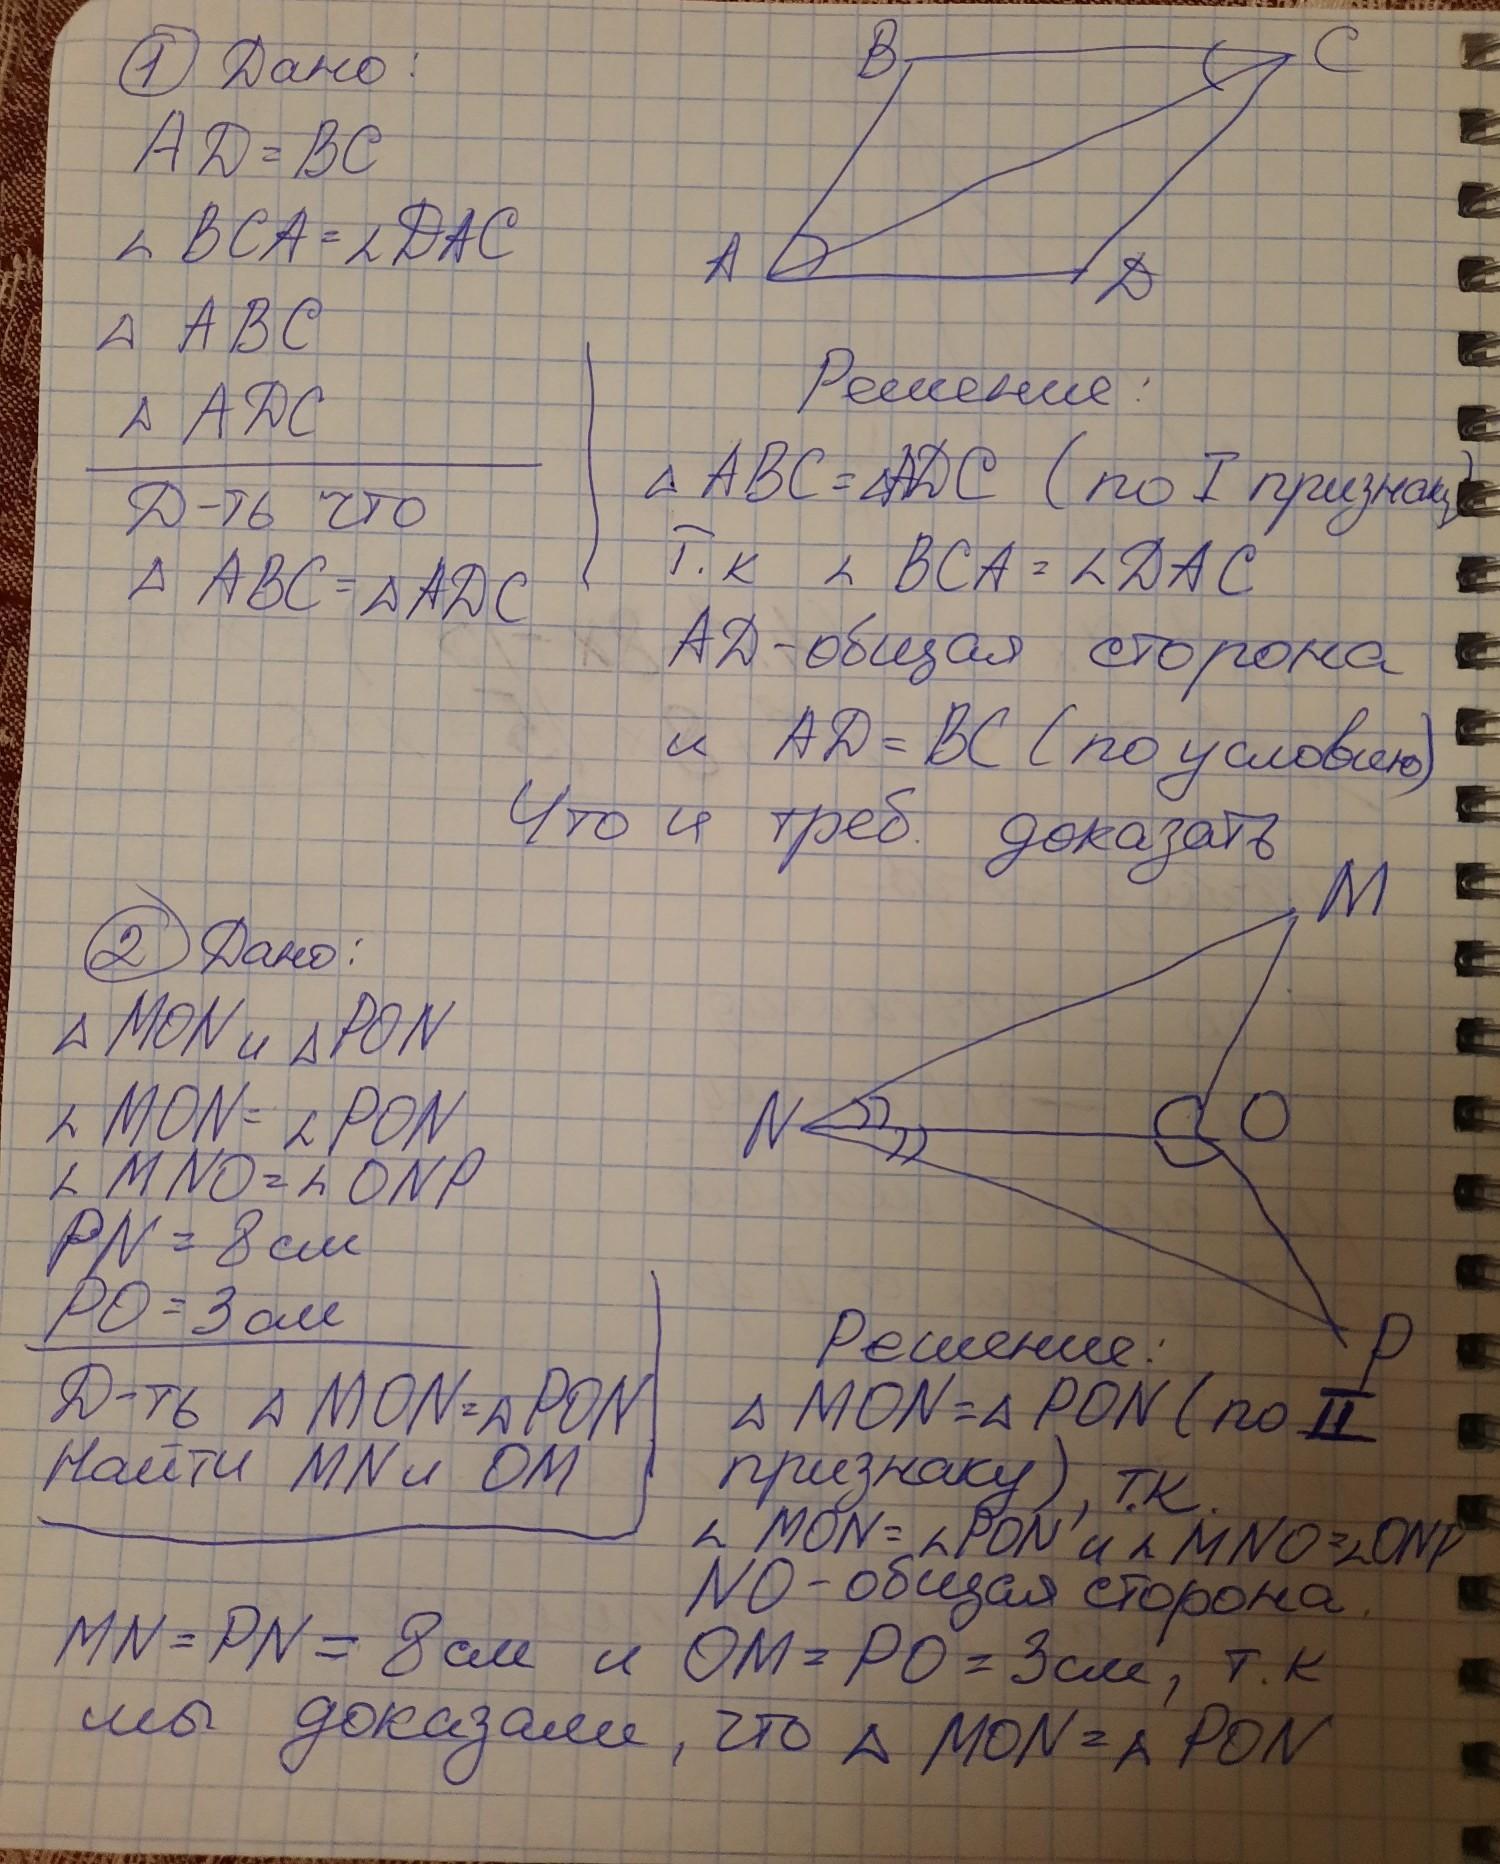 1 Дано:
AD=BC
∠ BCA=∠DAC
△ ABC
△ ADC
Д-ть что
△ ABC=△ADC
B
C
A
D
Решение:
△ ABC=△ADC (по I признаку)
Т.к ∠ BCA=∠DAC
AD-общая сторона
и AD=BC (по условию)
Что и треб. доказать
2 Дано:
△ MON и △PON
∠ MON=∠PON
∠ MNO=∠ONP
PN = 8 см
PO=3 см
Д-ть △ MON=△PON
Найти MN и OM
M
N
O
P
Решение:
△ MON=△ PON (по II
признаку), т.к.
∠ MON=∠PON и ∠ MNO=∠ONP
NO-общая сторона.
MN=PN= 8 см и OM=PO=3 см, т.к
мы доказали, что △ MON=△ PON